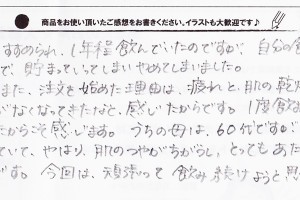 商品をお使い頂いたご感想をお書きください。イラストも大歓迎です♪
すすめられ、1年程飲んでいたのですが、自分の
で、貯まっていってしまいやめてしまいました。
また、注文を始めた理由は、疲れと、肌の乾
がなくなってきたなと、感じたからです。1度飲
たからこそ感じます。うちの母は、60代ですが
ていて、やはり、肌のつやがちがうし、とってもあた
です。今回は、頑張って飲み続けようと思